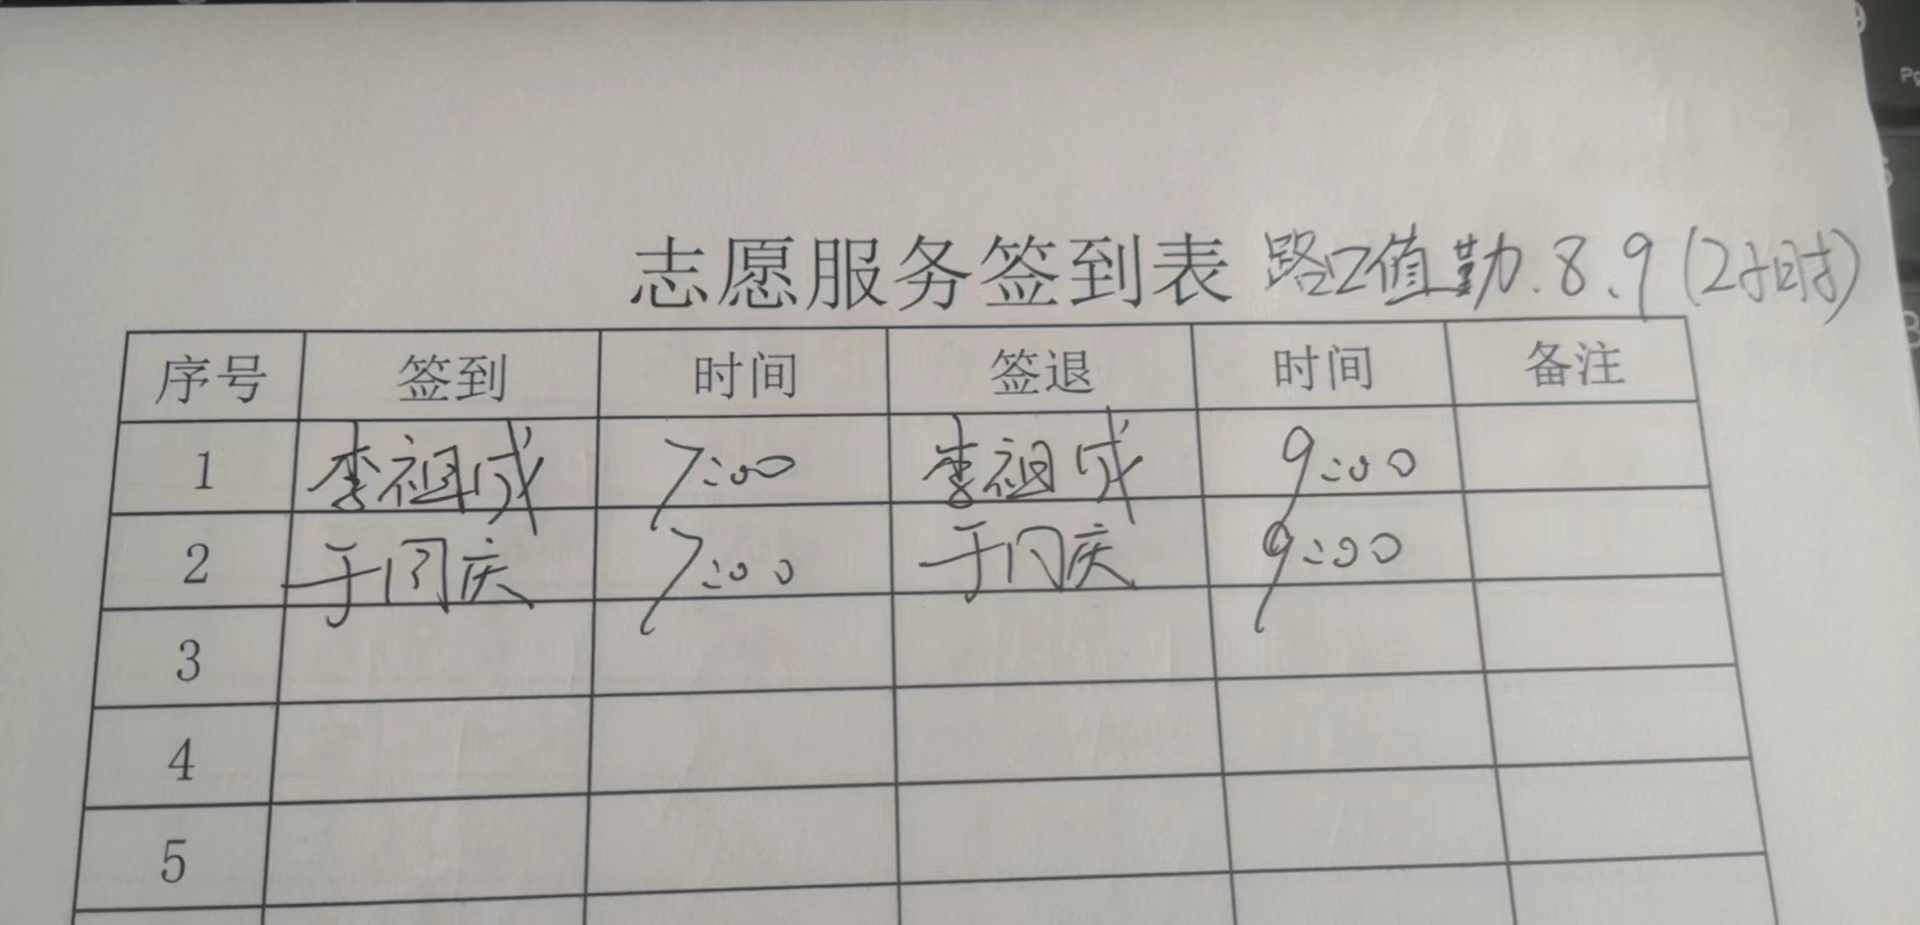 志愿服务签到表 路口值勤.8.9(2小时)
序号 签到 时间 签退 时间 备注
1 李祖成 7:00 李祖成 9:00
2 于闩庆 7:00 于闩庆 9:00
3
4
5